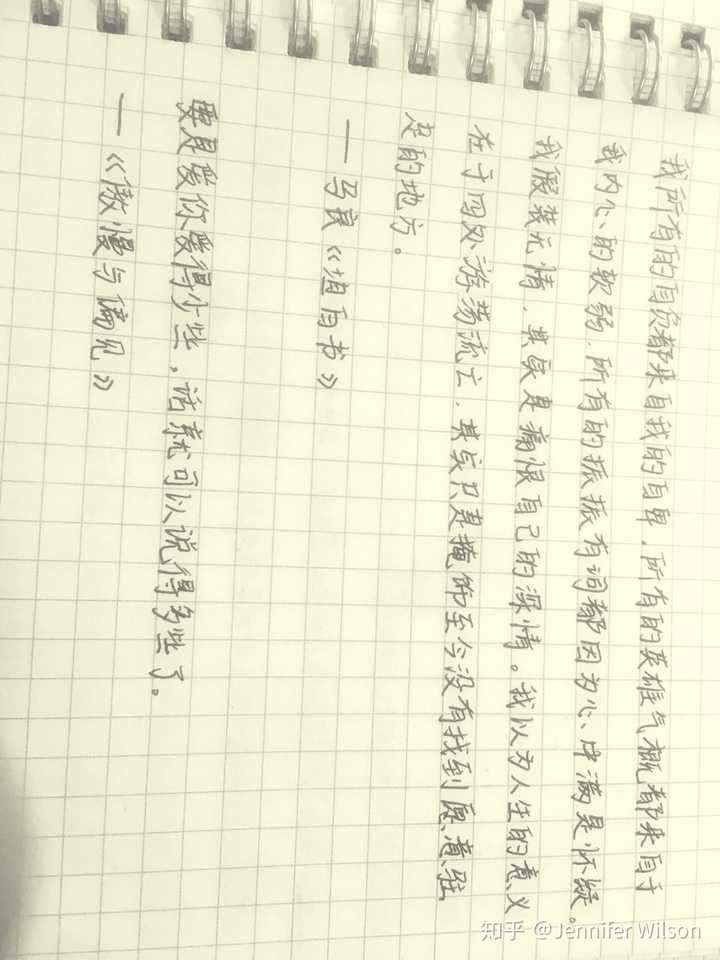 我所有的自负都来自我的自卑，所有的英雄气概都来自于
我内心的软弱，所有的振振有词都因为心中满是怀疑。
我假装无情，其实是痛恨自己的深情。我以为人生的意义
在于四处游荡流亡，其实只是掩饰至今没有找到愿意驻
足的地方。
——马良《坦白书》
要是爱你爱得少些，话就可以说得多些了。
——《傲慢与偏见》
知乎 @Jennifer Wilson